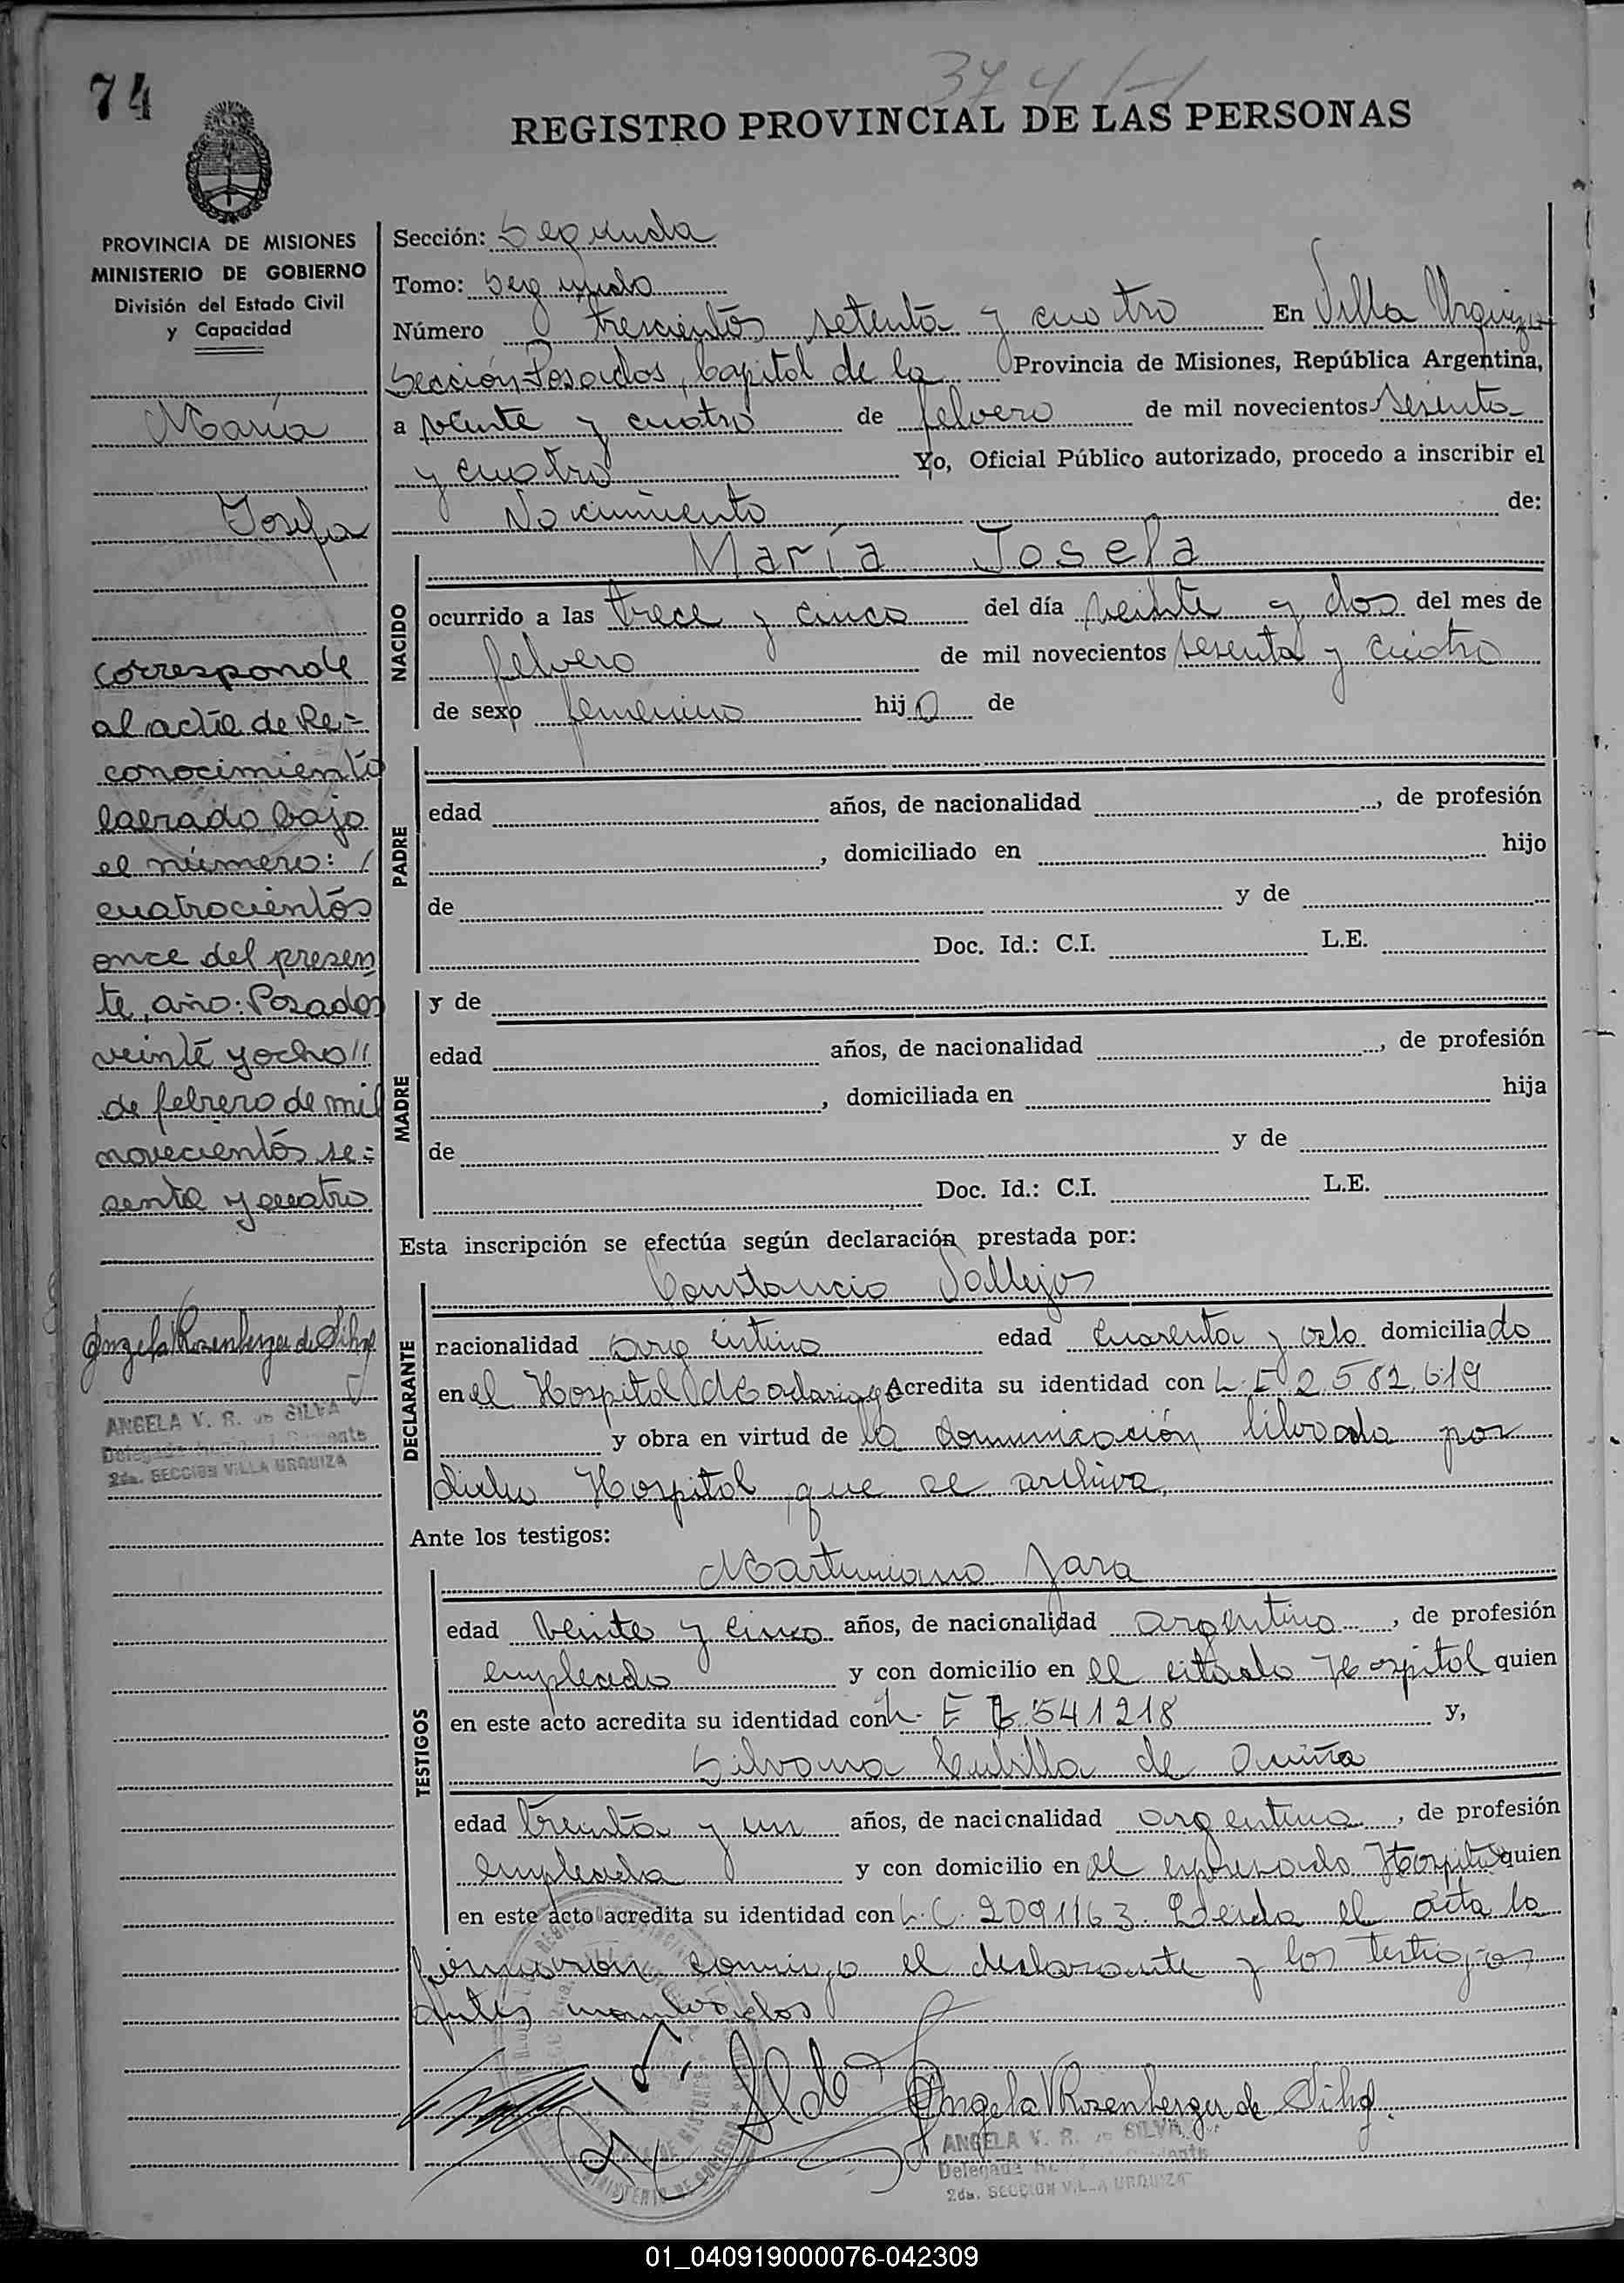 74
374
REGISTRO PROVINCIAL DE LAS PERSONAS
PROVINCIA DE MISIONES
MINISTERIO DE GOBIERNO
División del Estado Civil
y Capacidad
María
Josefa
corresponde
al acta de Re-
conocimiento
labrado bajo
el número: /
cuatrocientos
once del presen
te, año: Posadas
veinte y ocho //
de febrero de mil
novecientos se=
senta y cuatro
Angela V Rosenberger de Silva
ANGELA V. R. DE SILVA
2da. SECCION VILLA URQUIZA
Sección: Segunda
Tomo: Segundo
Número trescientos setenta y cuatro En Villa Urquiza
Sección Posadas, Capital de la Provincia de Misiones, República Argentina,
a veinte y cuatro de febrero de mil novecientos sesenta
y cuatro Yo, Oficial Público autorizado, procedo a inscribir el
Nacimiento de:
NACIDO
María Josefa
ocurrido a las trece y cinco del día veinte y dos del mes de
febrero de mil novecientos sesenta y cuatro
de sexo femenino hija de
PADRE
edad años, de nacionalidad , de profesión
, domiciliado en hijo
de y de
Doc. Id.: C.I. L.E.
MADRE
y de
edad años, de nacionalidad , de profesión
, domiciliada en hija
de y de
Doc. Id.: C.I. L.E.
Esta inscripción se efectúa según declaración prestada por:
DECLARANTE
Constancio Vallejos
nacionalidad argentino edad cuarenta y ocho domiciliado
en el Hospital Madariaga Acredita su identidad con L. E 2.582.619
y obra en virtud de la comunicación librada por
dicho Hospital que se archiva,
Ante los testigos:
TESTIGOS
Martiniano Jara
edad veinte y cinco años, de nacionalidad argentino, de profesión
empleado y con domicilio en el citado Hospital quien
en este acto acredita su identidad con L. E 541218 y,
Silvana Cubilla de
edad treinta y un años, de nacionalidad argentina, de profesión
empleada y con domicilio en el expresado Hospital quien
en este acto acredita su identidad con L. C. 2091163. Leída el acta la
firmaron conmigo el declarante y los testigos
antes nombrados
Angela V Rosenberger de Silva
ANGELA V. R. DE SILVA
2da. SECCION VILLA URQUIZA
01_040919000076-042309